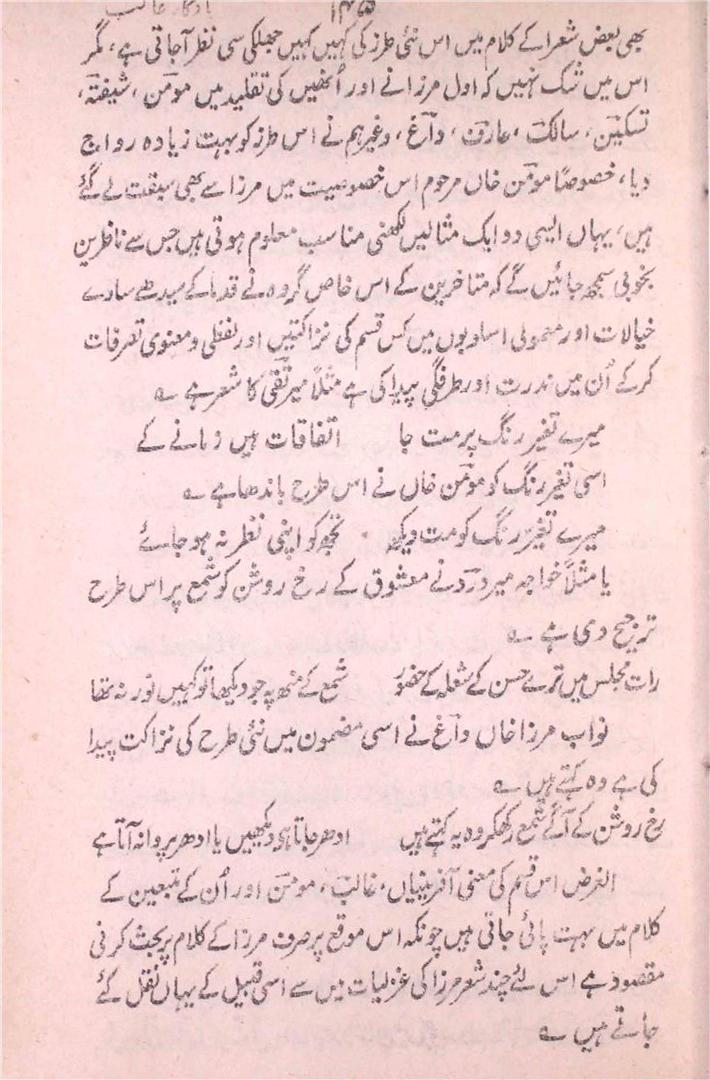 ۱۴۵ یادگار غالب
بھی بعض شعرا کے کلام میں اس نئی طرز کی کہیں کہیں جھلکی سی نظر آجاتی ہے، مگر
اس میں شک نہیں کہ اول مرزا نے اور اُنھیں کی تقلید میں مومن، شیفتہ،
تسکین، سالک، عارف، داغ، وغیرہم نے اس طرز کو بہت زیادہ رواج
دیا، خصوصًا مومن خاں مرحوم اس خصوصیت میں مرزا سے بھی سبقت لے گئے
ہیں، یہاں ایسی دو ایک مثالیں لکھنی مناسب معلوم ہوتی ہیں جس سے ناظرین
بخوبی سمجھ جائیں گے کہ متاخرین کے اس خاص گروہ نے قدما کے سیدھے سادے
خیالات اور معمولی اسلوبوں میں کس قسم کی نزاکتیں اور لفظی و معنوی تصرفات
کرکے اُن میں ندرت اور طرفگی پیدا کی ہے مثلًا میر تقی کا شعر ہے ؎
میرے تغیر رنگ پر مت جا اتفاقات ہیں زمانے کے
اسی تغیر رنگ کو مومن خاں نے اس طرح باندھا ہے ؎
میرے تغیر رنگ کو مت دیکھ تجھ کو اپنی نظر نہ ہو جائے
یا مثلًا خواجہ میر درد نے معشوق کے رخ روشن کو شمع پر اس طرح
ترجیح دی ہے ؎
رات مجلس میں ترے حسن کے شعلہ کے حضور شمع کے منھ پہ جو دیکھا تو کہیں نور نہ تھا
نواب مرزا خاں داغ نے اسی مضمون میں نئی طرح کی نزاکت پیدا
کی ہے وہ کہتے ہیں ؎
رخ روشن کے آگے شمع رکھکر وہ یہ کہتے ہیں ادھر جاتا ہی دیکھیں یا ادھر پروانہ آتا ہے
الغرض اس قسم کی معنی آفرینیاں، غالب، مومن اور اُن کے متبعین کے
کلام میں بہت پائی جاتی ہیں چونکہ اس موقع پر صرف مرزا کے کلام پر بحث کرنی
مقصود ہے اس لئے چند شعر مرزا کی غزلیات میں سے اسی قبیل کے یہاں نقل کئے
جاتے ہیں ؎